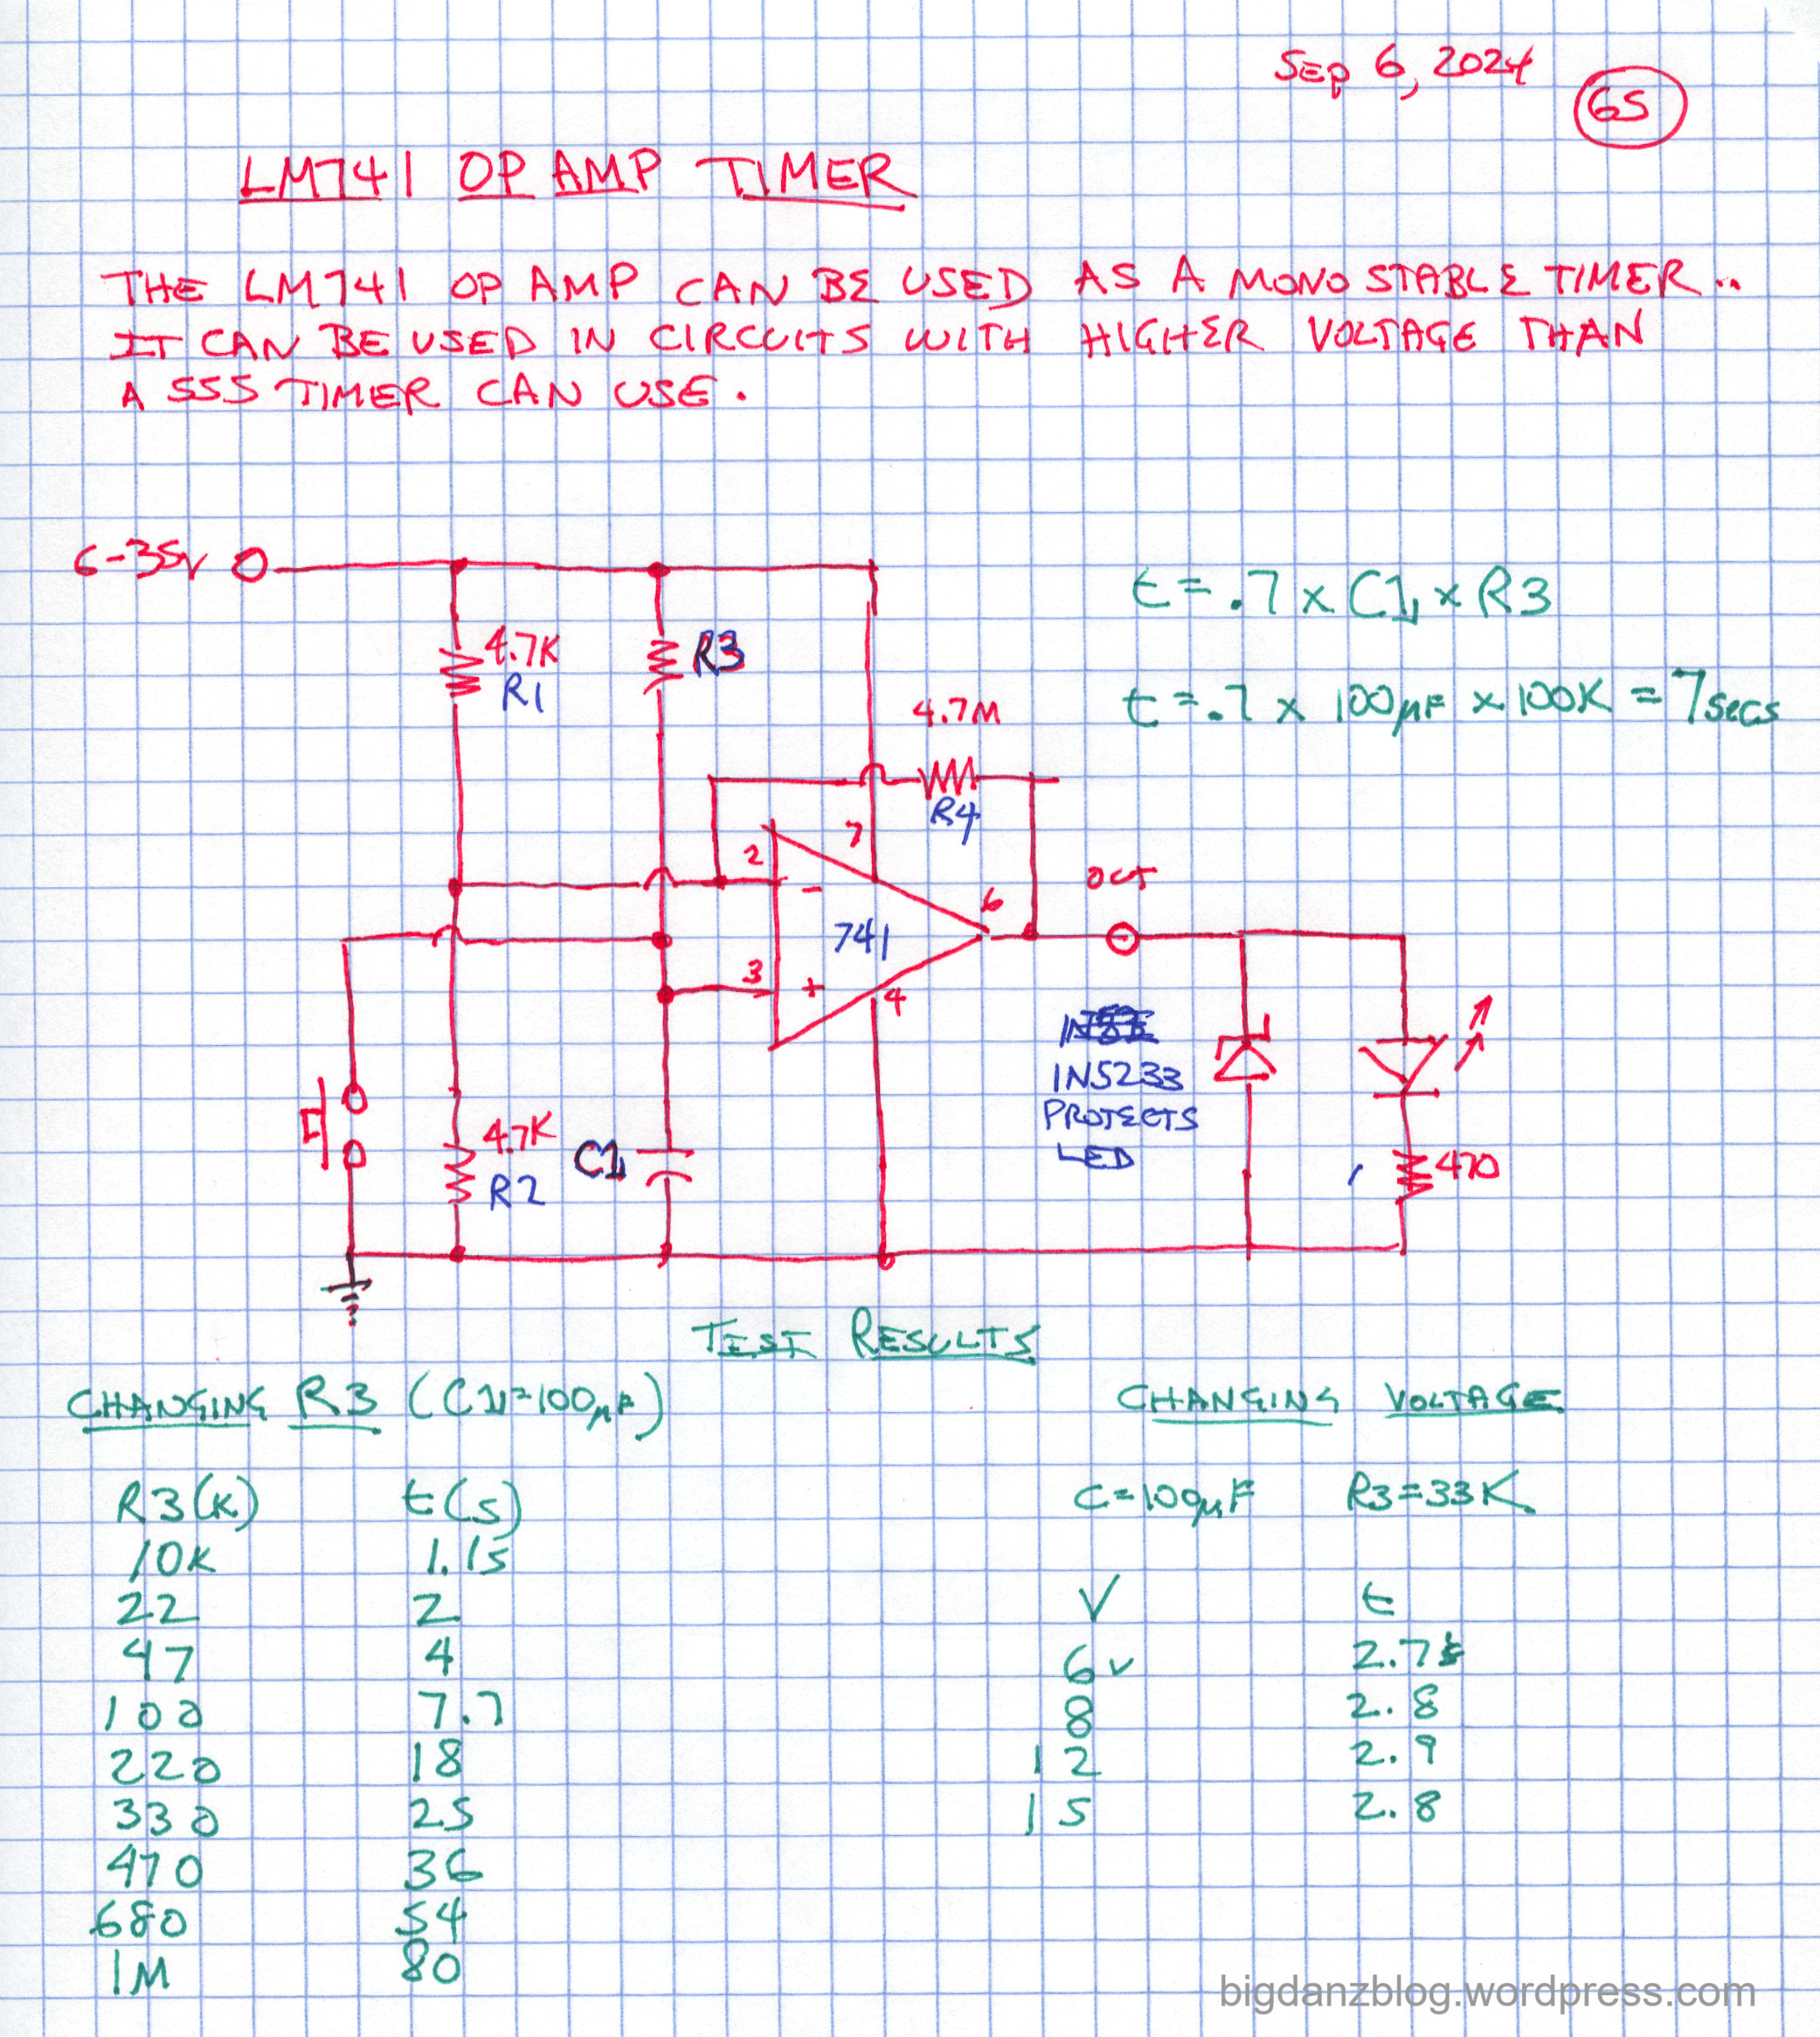 Sep 6, 2024
65
LM741 OP AMP TIMER
THE LM741 OP AMP CAN BE USED AS A MONO STABLE TIMER..
IT CAN BE USED IN CIRCUITS WITH HIGHER VOLTAGE THAN
A 555 TIMER CAN USE.
6-35v
t = .7 x C1 x R3
4.7K
R1
R3
t = .7 x 100µF x 100K = 7secs
4.7M
R4
2
7
-
6
OUT
741
3
+
4
1N5233
PROTECTS
LED
4.7K
R2
C1
470
TEST RESULTS
CHANGING R3 (C1=100µF)
CHANGING VOLTAGE
R3(K) t(s)
C=100µF R3=33K
10K 1.15
22 2
V t
47 4
6v 2.7s
100 7.7
8 2.8
220 18
12 2.9
330 25
15 2.8
470 36
680 54
1M 80
bigdanzblog.wordpress.com